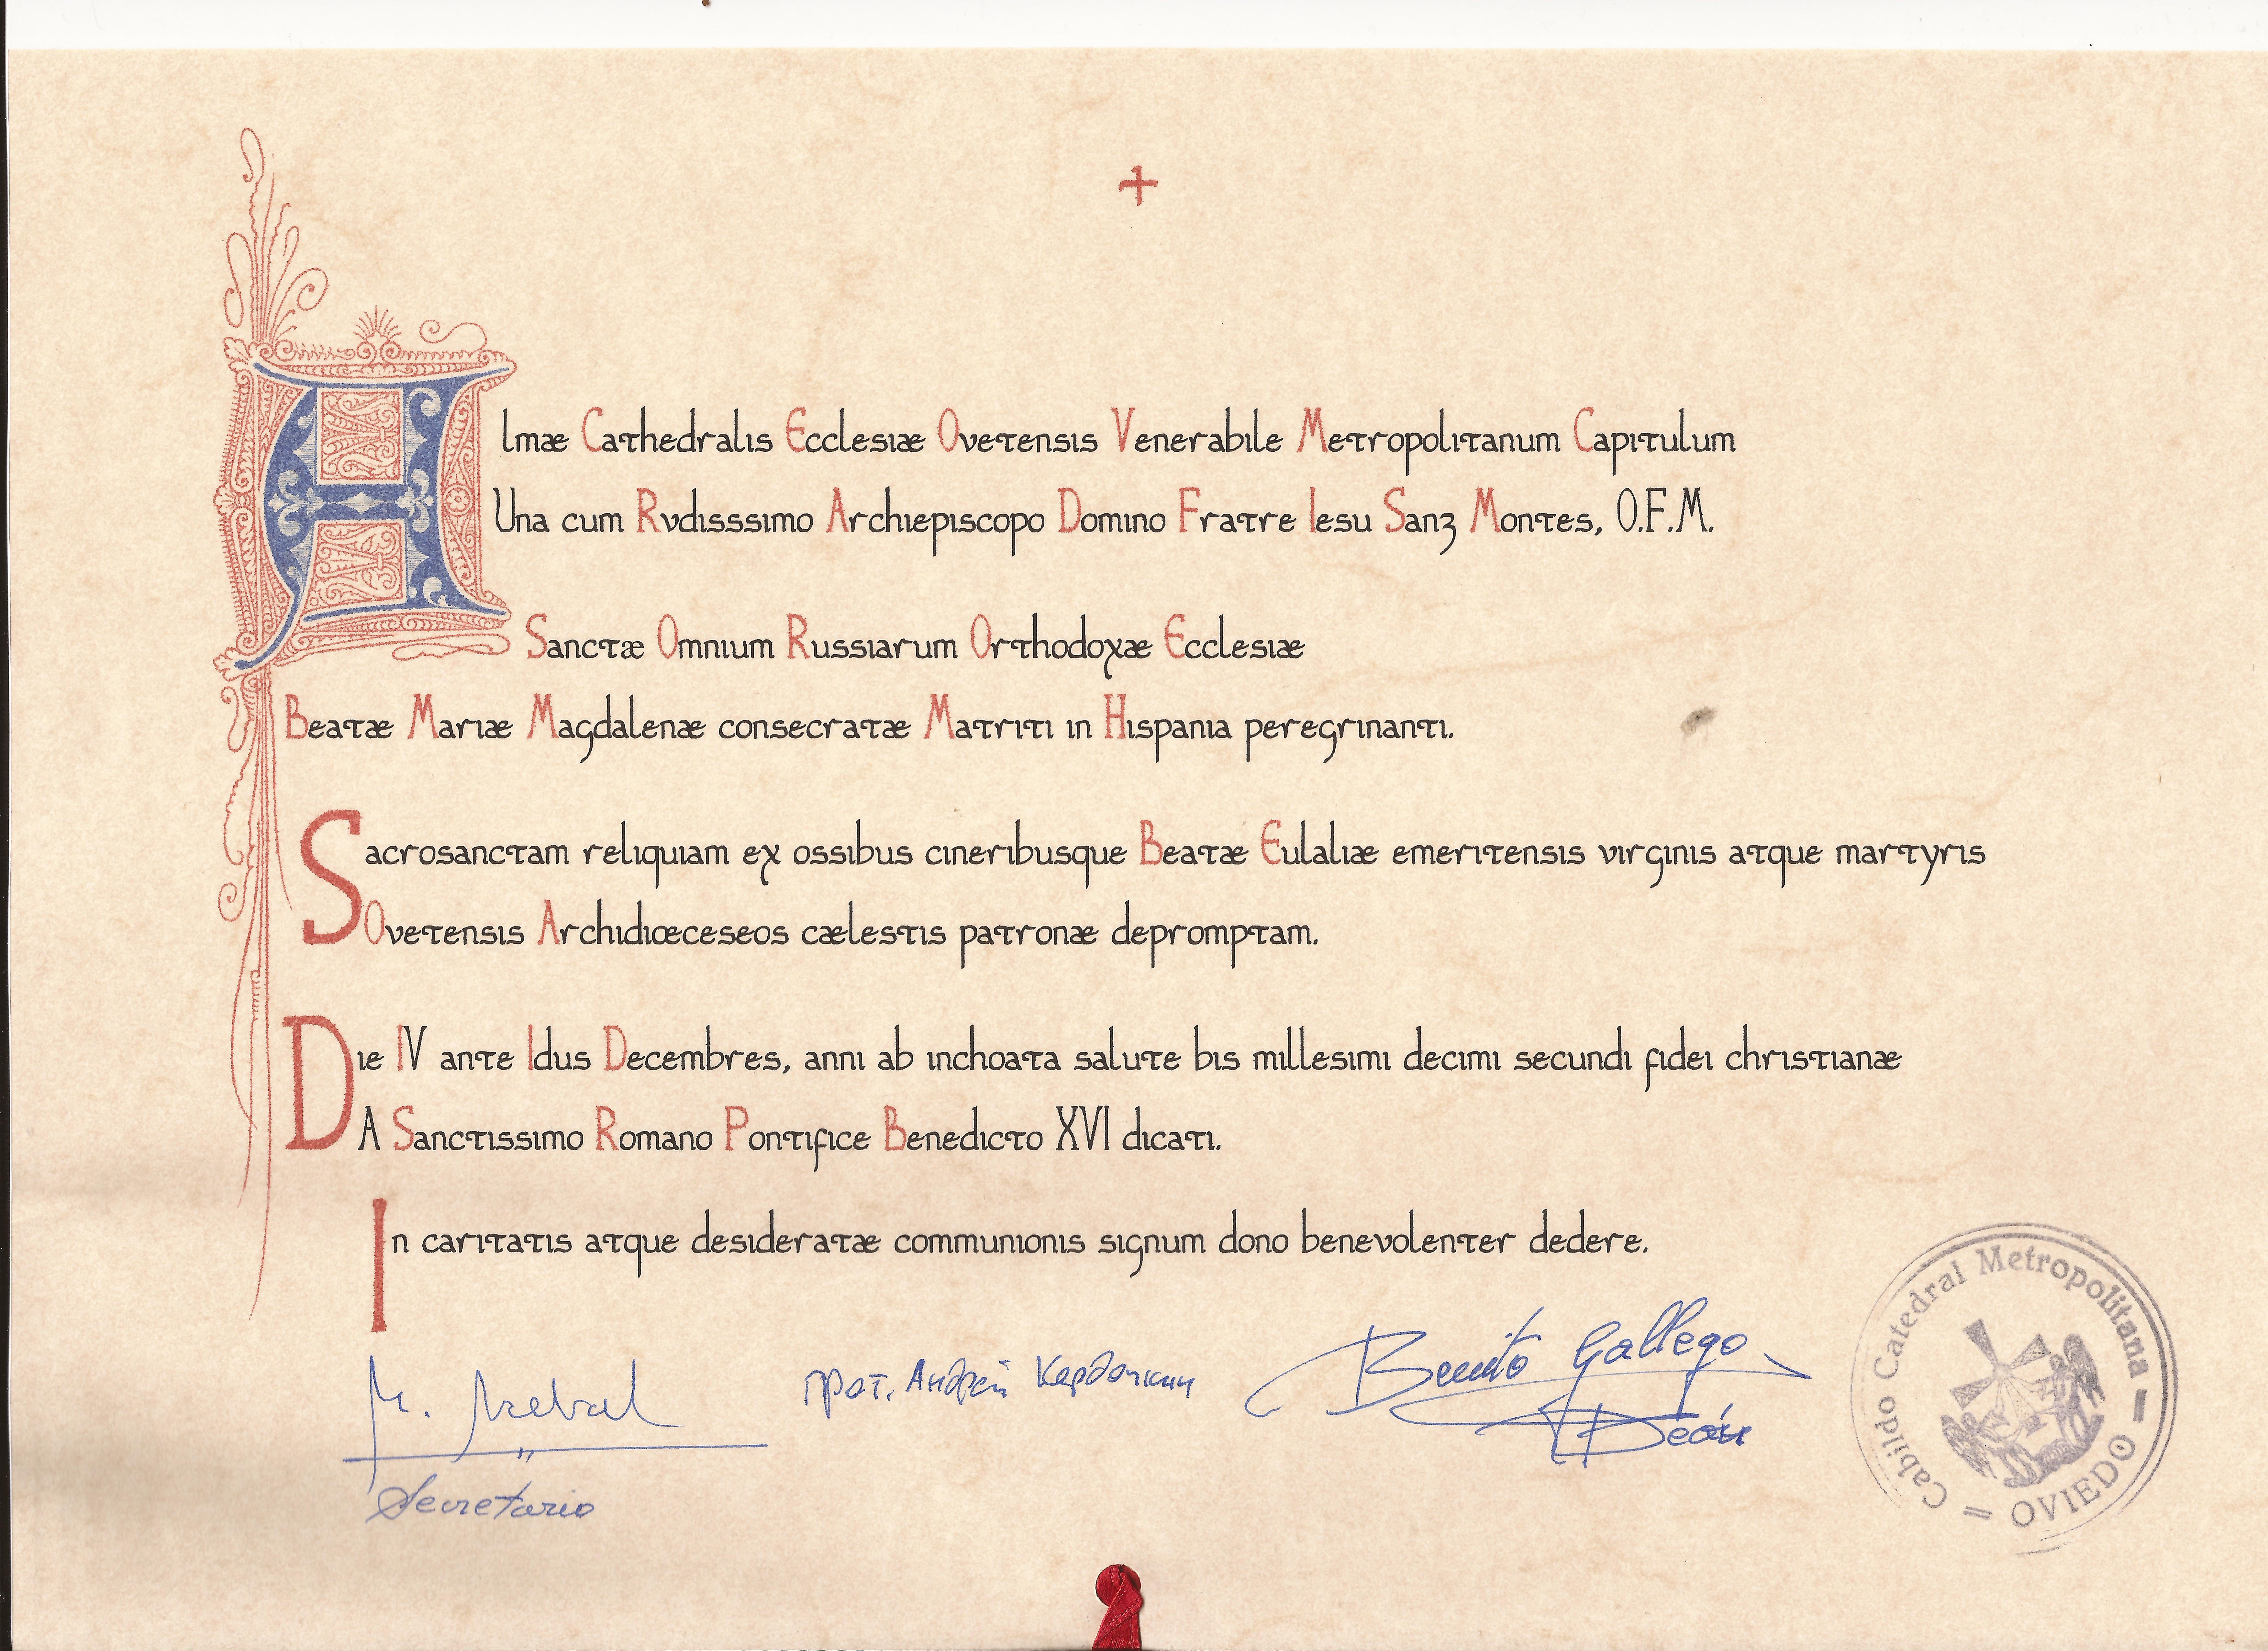 +
Almæ Cathedralis Ecclesiæ Ovetensis Venerabile Metropolitanum Capitulum
Una cum Rvdisssimo Archiepiscopo Domino Fratre Iesu Sanz Montes, O.F.M.
Sanctæ Omnium Russiarum Orthodoxæ Ecclesiæ
Beatæ Mariæ Magdalenæ consecratæ Matriti in Hispania peregrinanti.
Sacrosanctam reliquiam ex ossibus cineribusque Beatæ Eulaliæ emeritensis virginis atque martyris
Ovetensis Archidiœceseos cælestis patronæ depromptam.
Die IV ante Idus Decembres, anni ab inchoata salute bis millesimi decimi secundi fidei christianæ
A Sanctissimo Romano Pontifice Benedicto XVI dicati.
In caritatis atque desideratæ communionis signum dono benevolenter dedere.
M.
Secretario
прот. Андрей Кордочкин
Benito Gallego
Deán
Cabildo Catedral Metropolitana = OVIEDO =